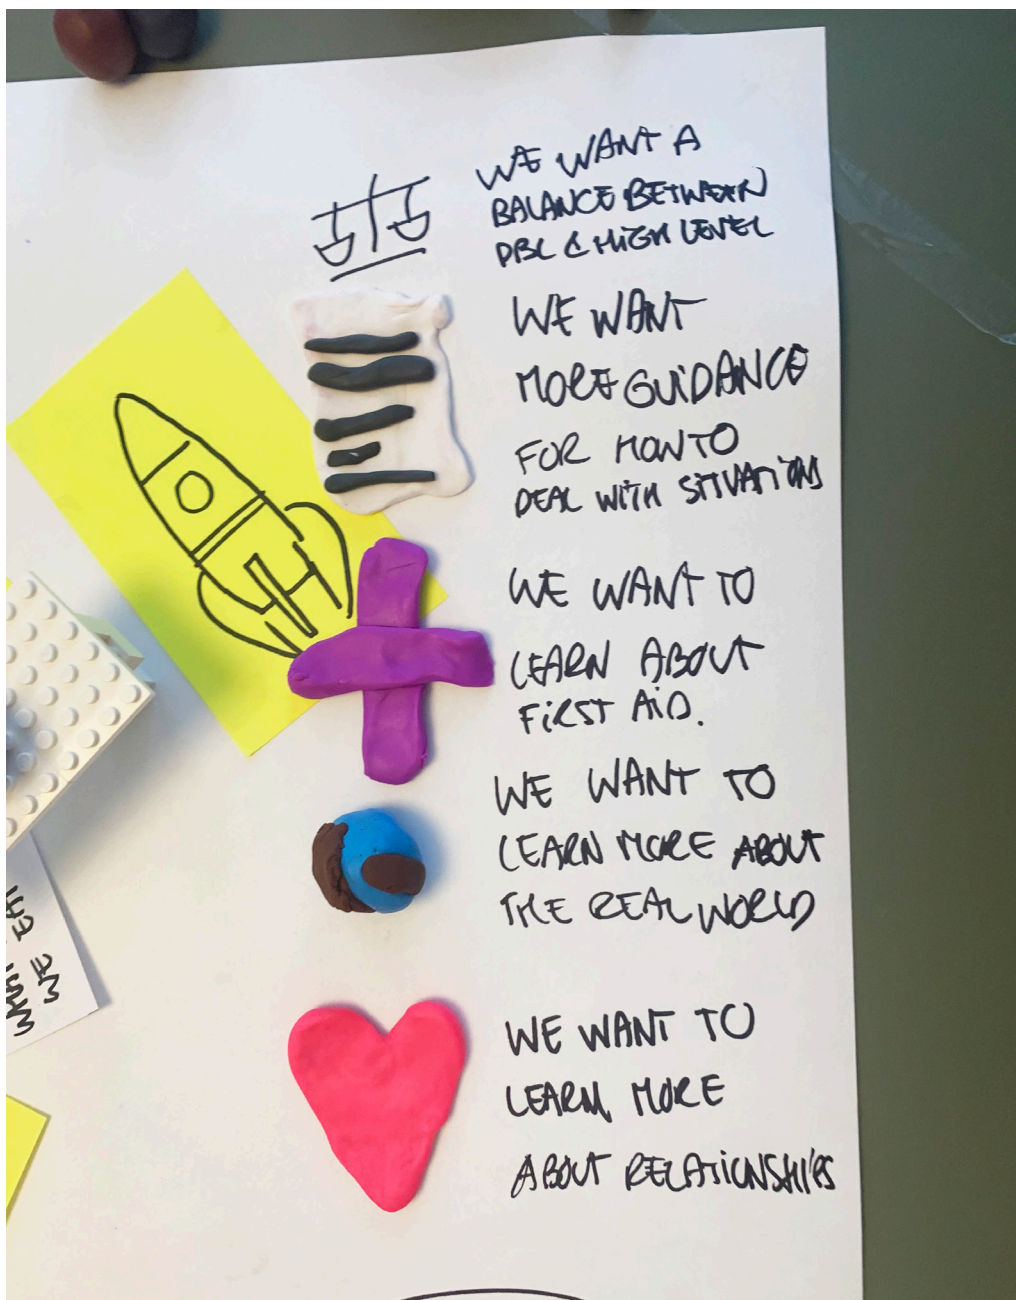 WE WANT A
BALANCE BETWEEN
PBL & HIGH LEVEL
WE WANT
MORE GUIDANCE
FOR HOW TO
DEAL WITH SITUATIONS
WE WANT TO
LEARN ABOUT
FIRST AID.
WE WANT TO
LEARN MORE ABOUT
THE REAL WORLD
WE WANT TO
LEARN MORE
ABOUT RELATIONSHIPS
WE